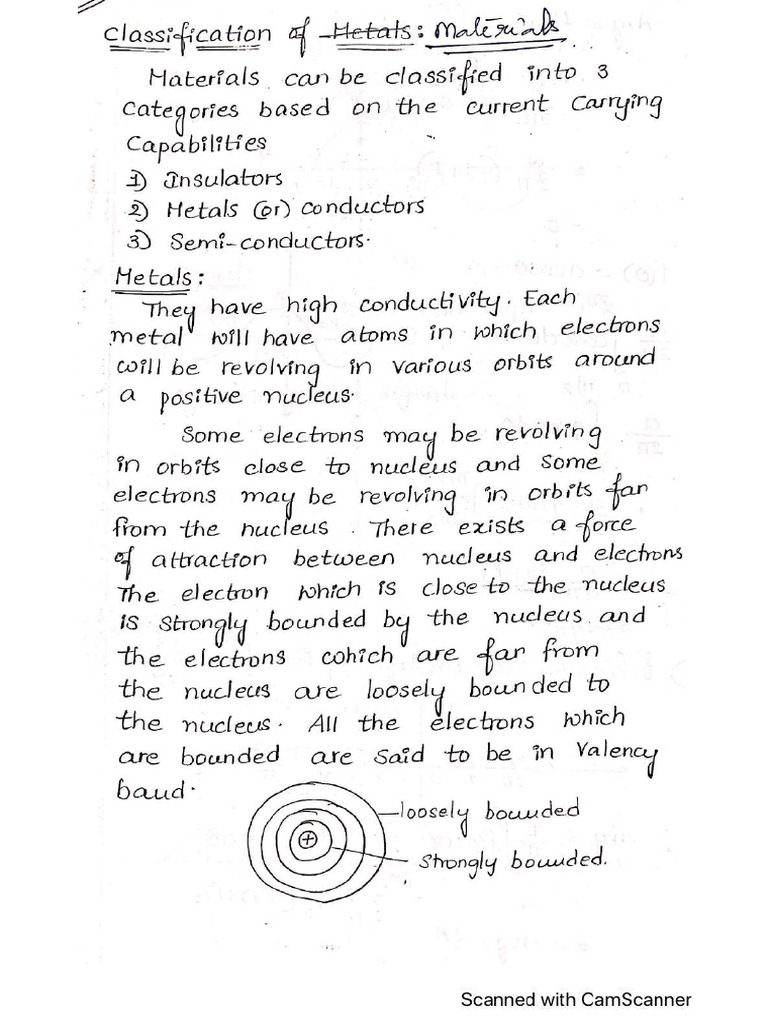 Classification of Metals: Materials
Materials can be classified into 3
Categories based on the current Carrying
Capabilities
1) Insulators
2) Metals (or) conductors
3) Semi-conductors.
Metals:
They have high conductivity. Each
metal will have atoms in which electrons
will be revolving in various orbits around
a positive nucleus.
Some electrons may be revolving
in orbits close to nucleus and some
electrons may be revolving in orbits far
from the nucleus. There exists a force
of attraction between nucleus and electrons
The electron which is close to the nucleus
is strongly bounded by the nucleus and
the electrons which are far from
the nucleus are loosely bounded to
the nucleus. All the electrons which
are bounded are said to be in Valency
band.
loosely bounded
+
strongly bounded.
Scanned with CamScanner